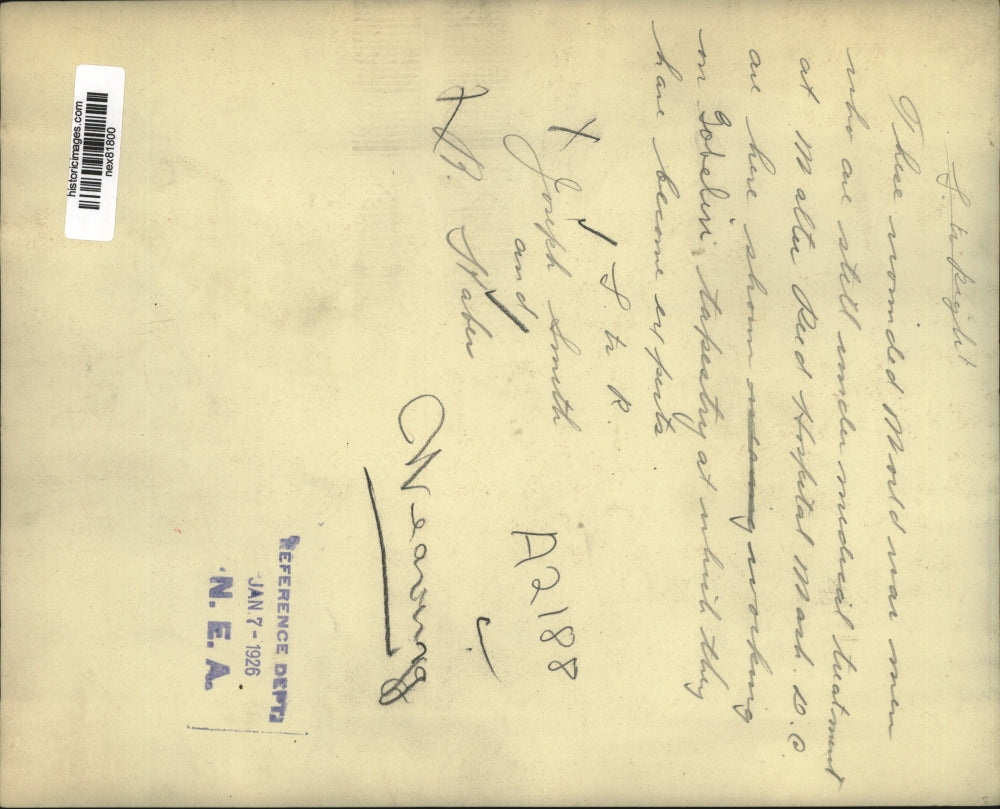 L. to Right
These wounded World war men
who are still under medical treatment
at Walter Reed Hospital Wash. D.C.
are here shown weaving working
on Gobelin tapestry at which they
have become experts
L to R.
X Joseph Smith
and
X B. Naber
Weaving
A2188
REFERENCE DEPT.
JAN. 7 - 1926
N. E. A.
historicimages.com
nex81800